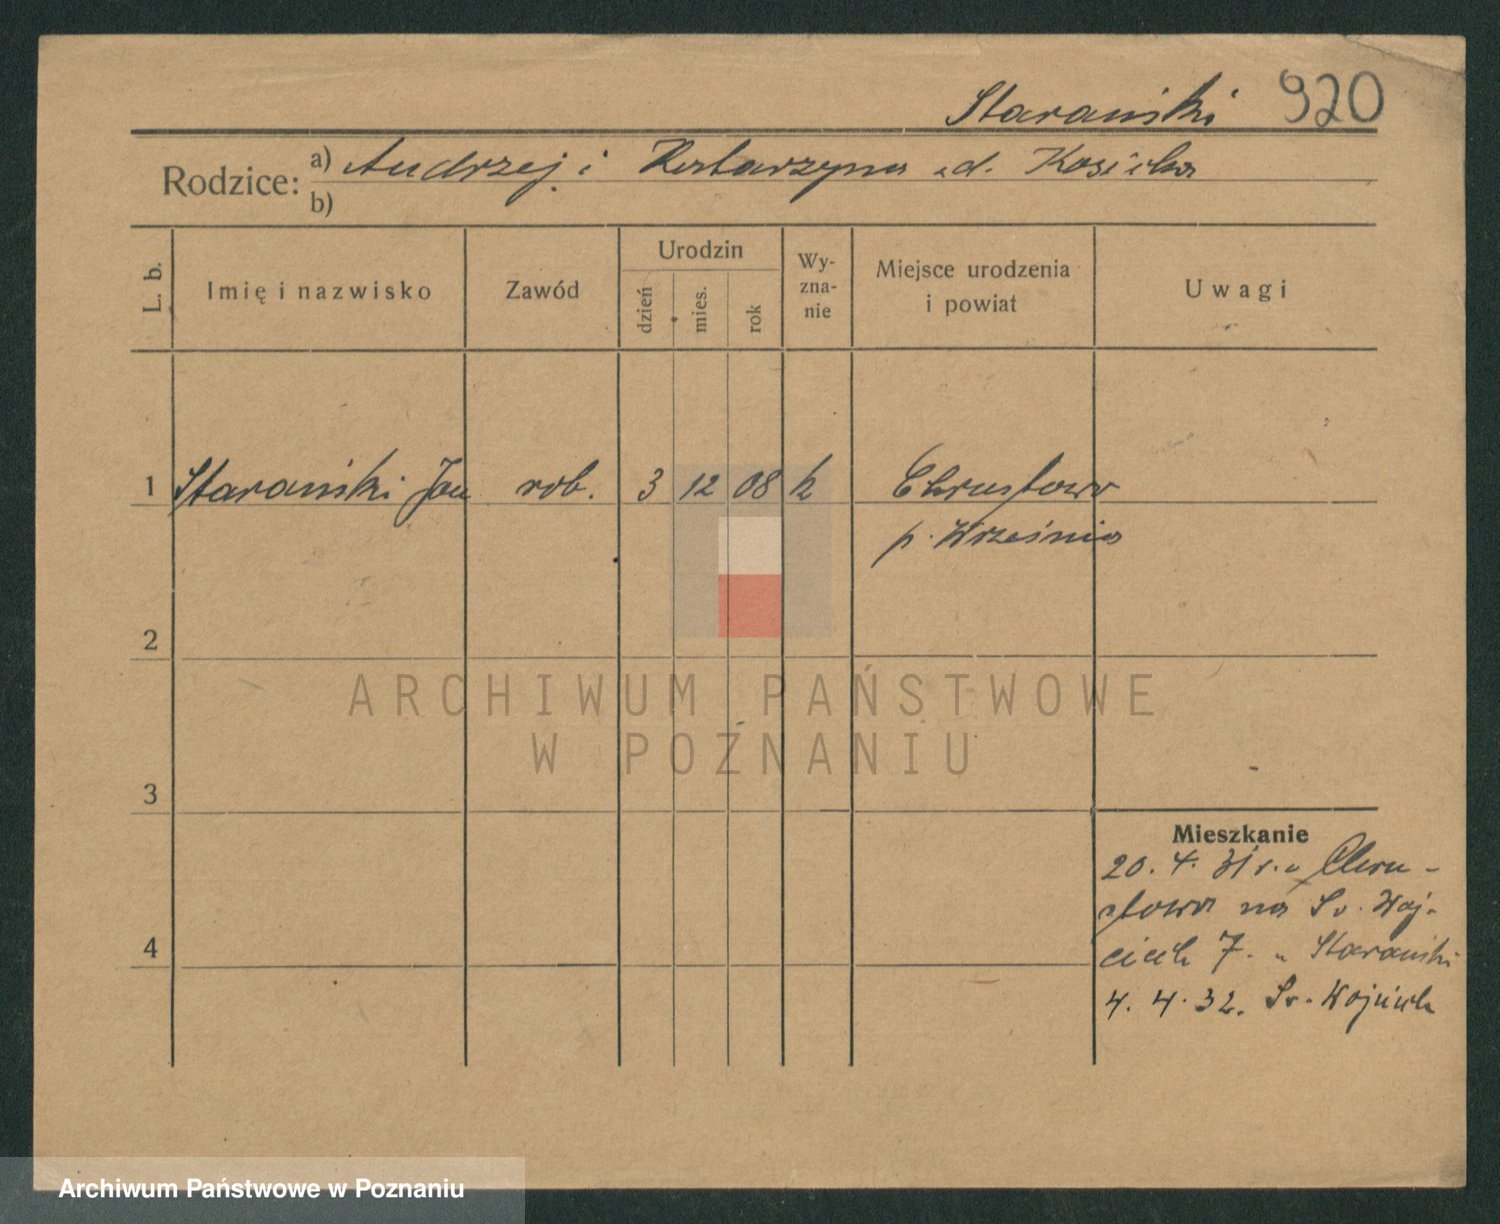 Starański 920
Rodzice: a) Andrzej i Katarzyna z d. Kosicka
b)
L. b. Imię i nazwisko Zawód Urodzin dzień mies. rok Wy-zna-nie Miejsce urodzenia i powiat Uwagi
1 Starański Jan rob. 3 12 08 k Chrustowo
p. Września
2
ARCHIWUM PAŃSTWOWE
W POZNANIU
3
Mieszkanie
20. 4. 31 r. z Chru-
stowa na Św. Woj-
ciech 7. u Starański
4
4. 4. 32. Św. Wojciech
Archiwum Państwowe w Poznaniu